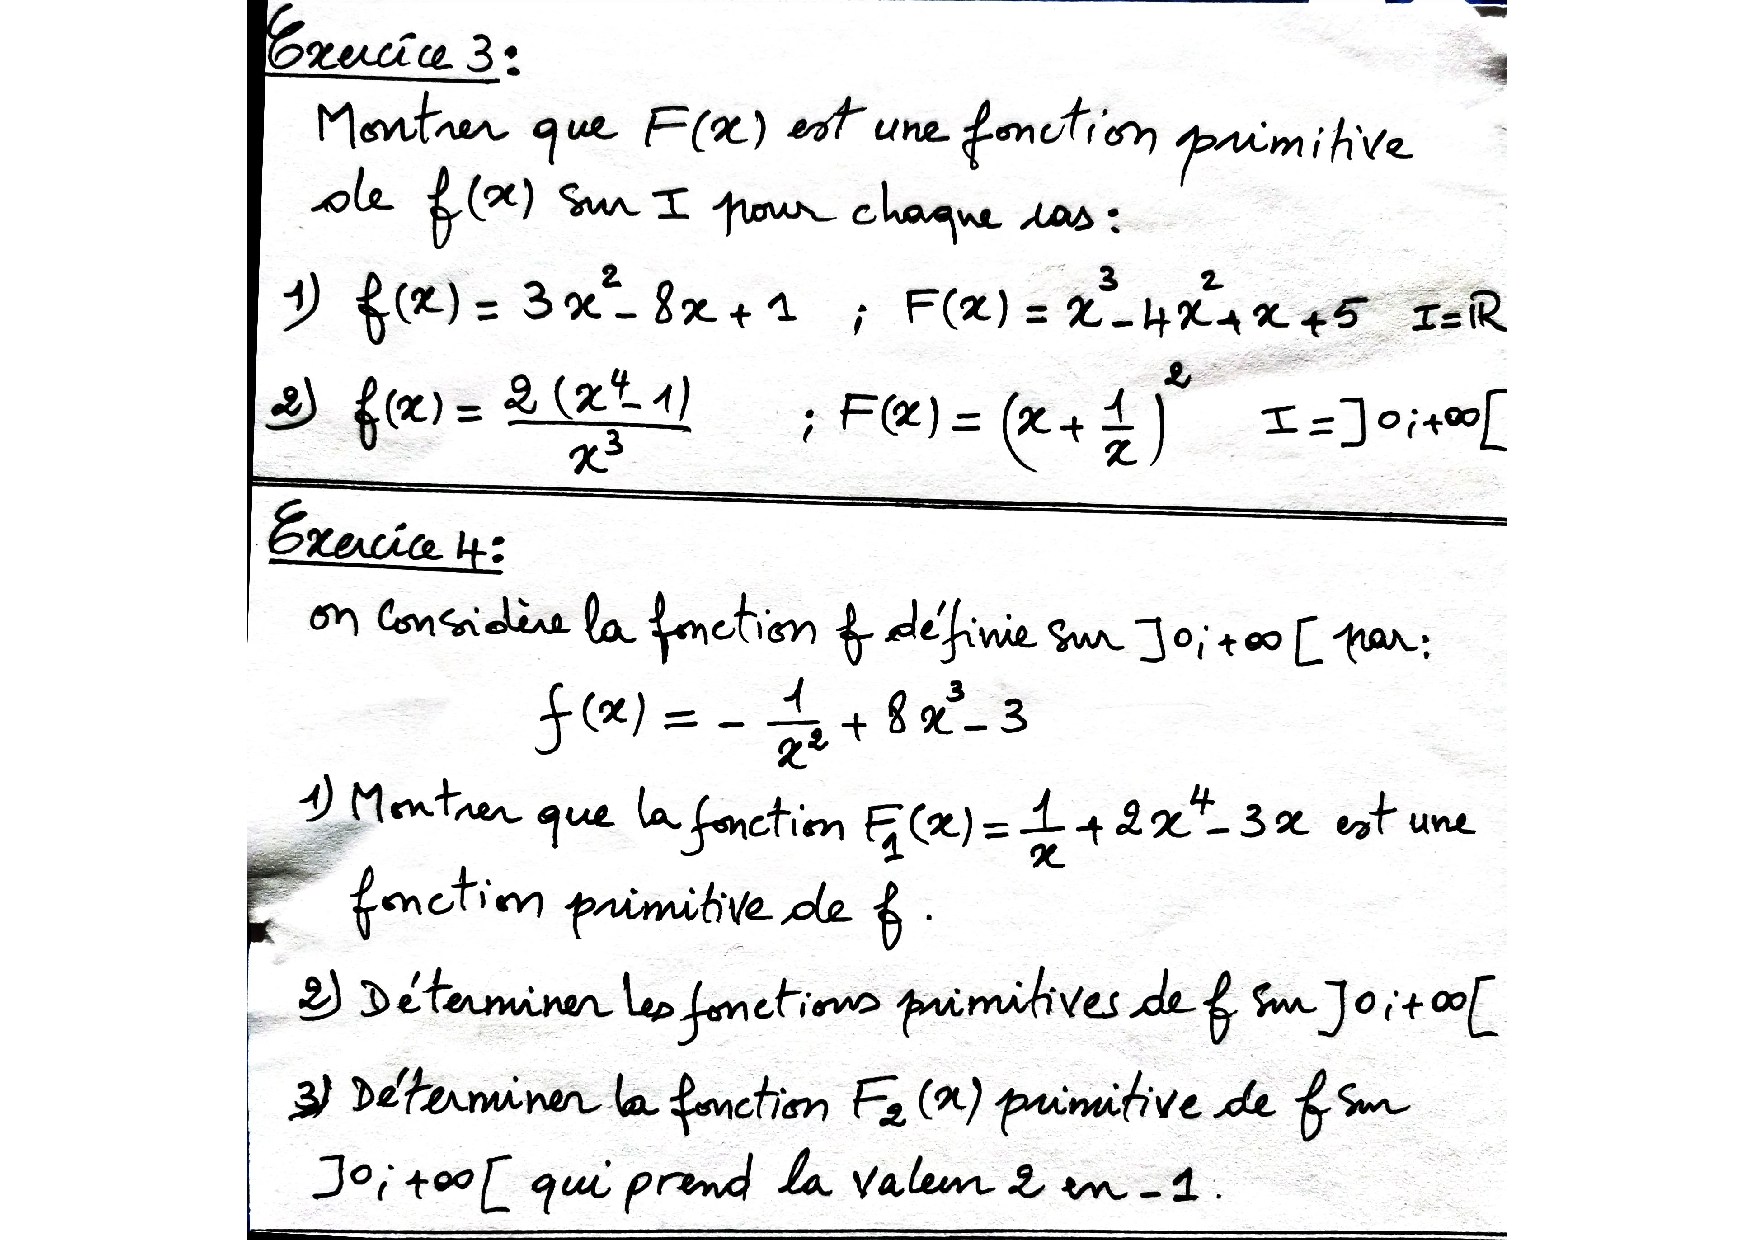 Exercice 3:
Montrer que F(x) est une fonction primitive
de f(x) sur I pour chaque cas:
1) f(x) = 3x² - 8x + 1 ; F(x) = x³ - 4x² + x + 5 I = ℝ
2) f(x) = 2(x⁴ - 1)/x³ ; F(x) = (x + 1/x)² I = ]0;+∞[
Exercice 4:
on considère la fonction f définie sur ]0;+∞[ par:
f(x) = - 1/x² + 8x³ - 3
1) Montrer que la fonction F₁(x) = 1/x + 2x⁴ - 3x est une
fonction primitive de f.
2) Déterminer les fonctions primitives de f sur ]0;+∞[
3) Déterminer la fonction F₂(x) primitive de f sur
]0;+∞[ qui prend la valeur 2 en -1.